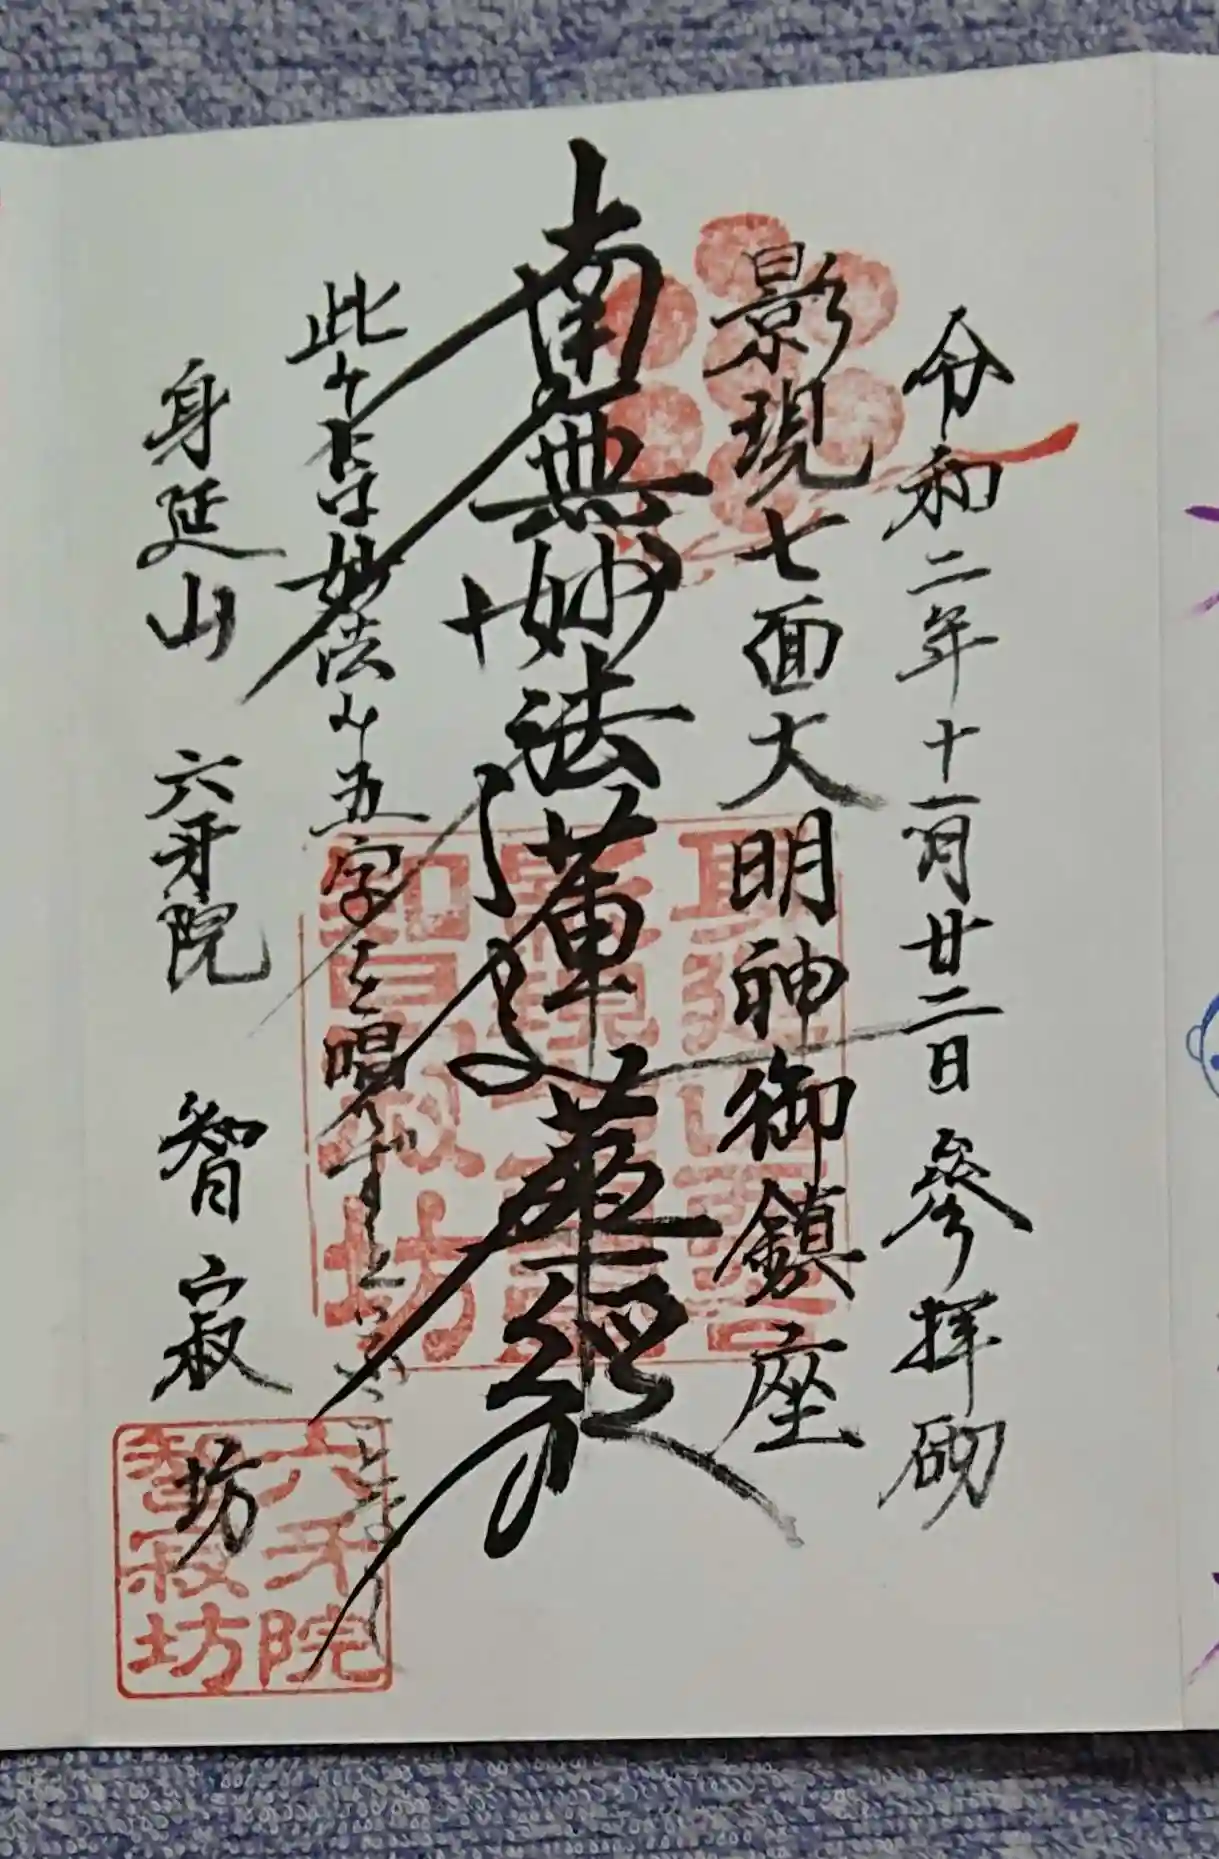 令和二年十一月廿二日 參拝砌
影現七面大明神御鎮座
南無妙法蓮華経
此ケ下は妙法の五字を唱
身延山 六牙院 智寂坊
智寂坊
六牙院
智寂坊